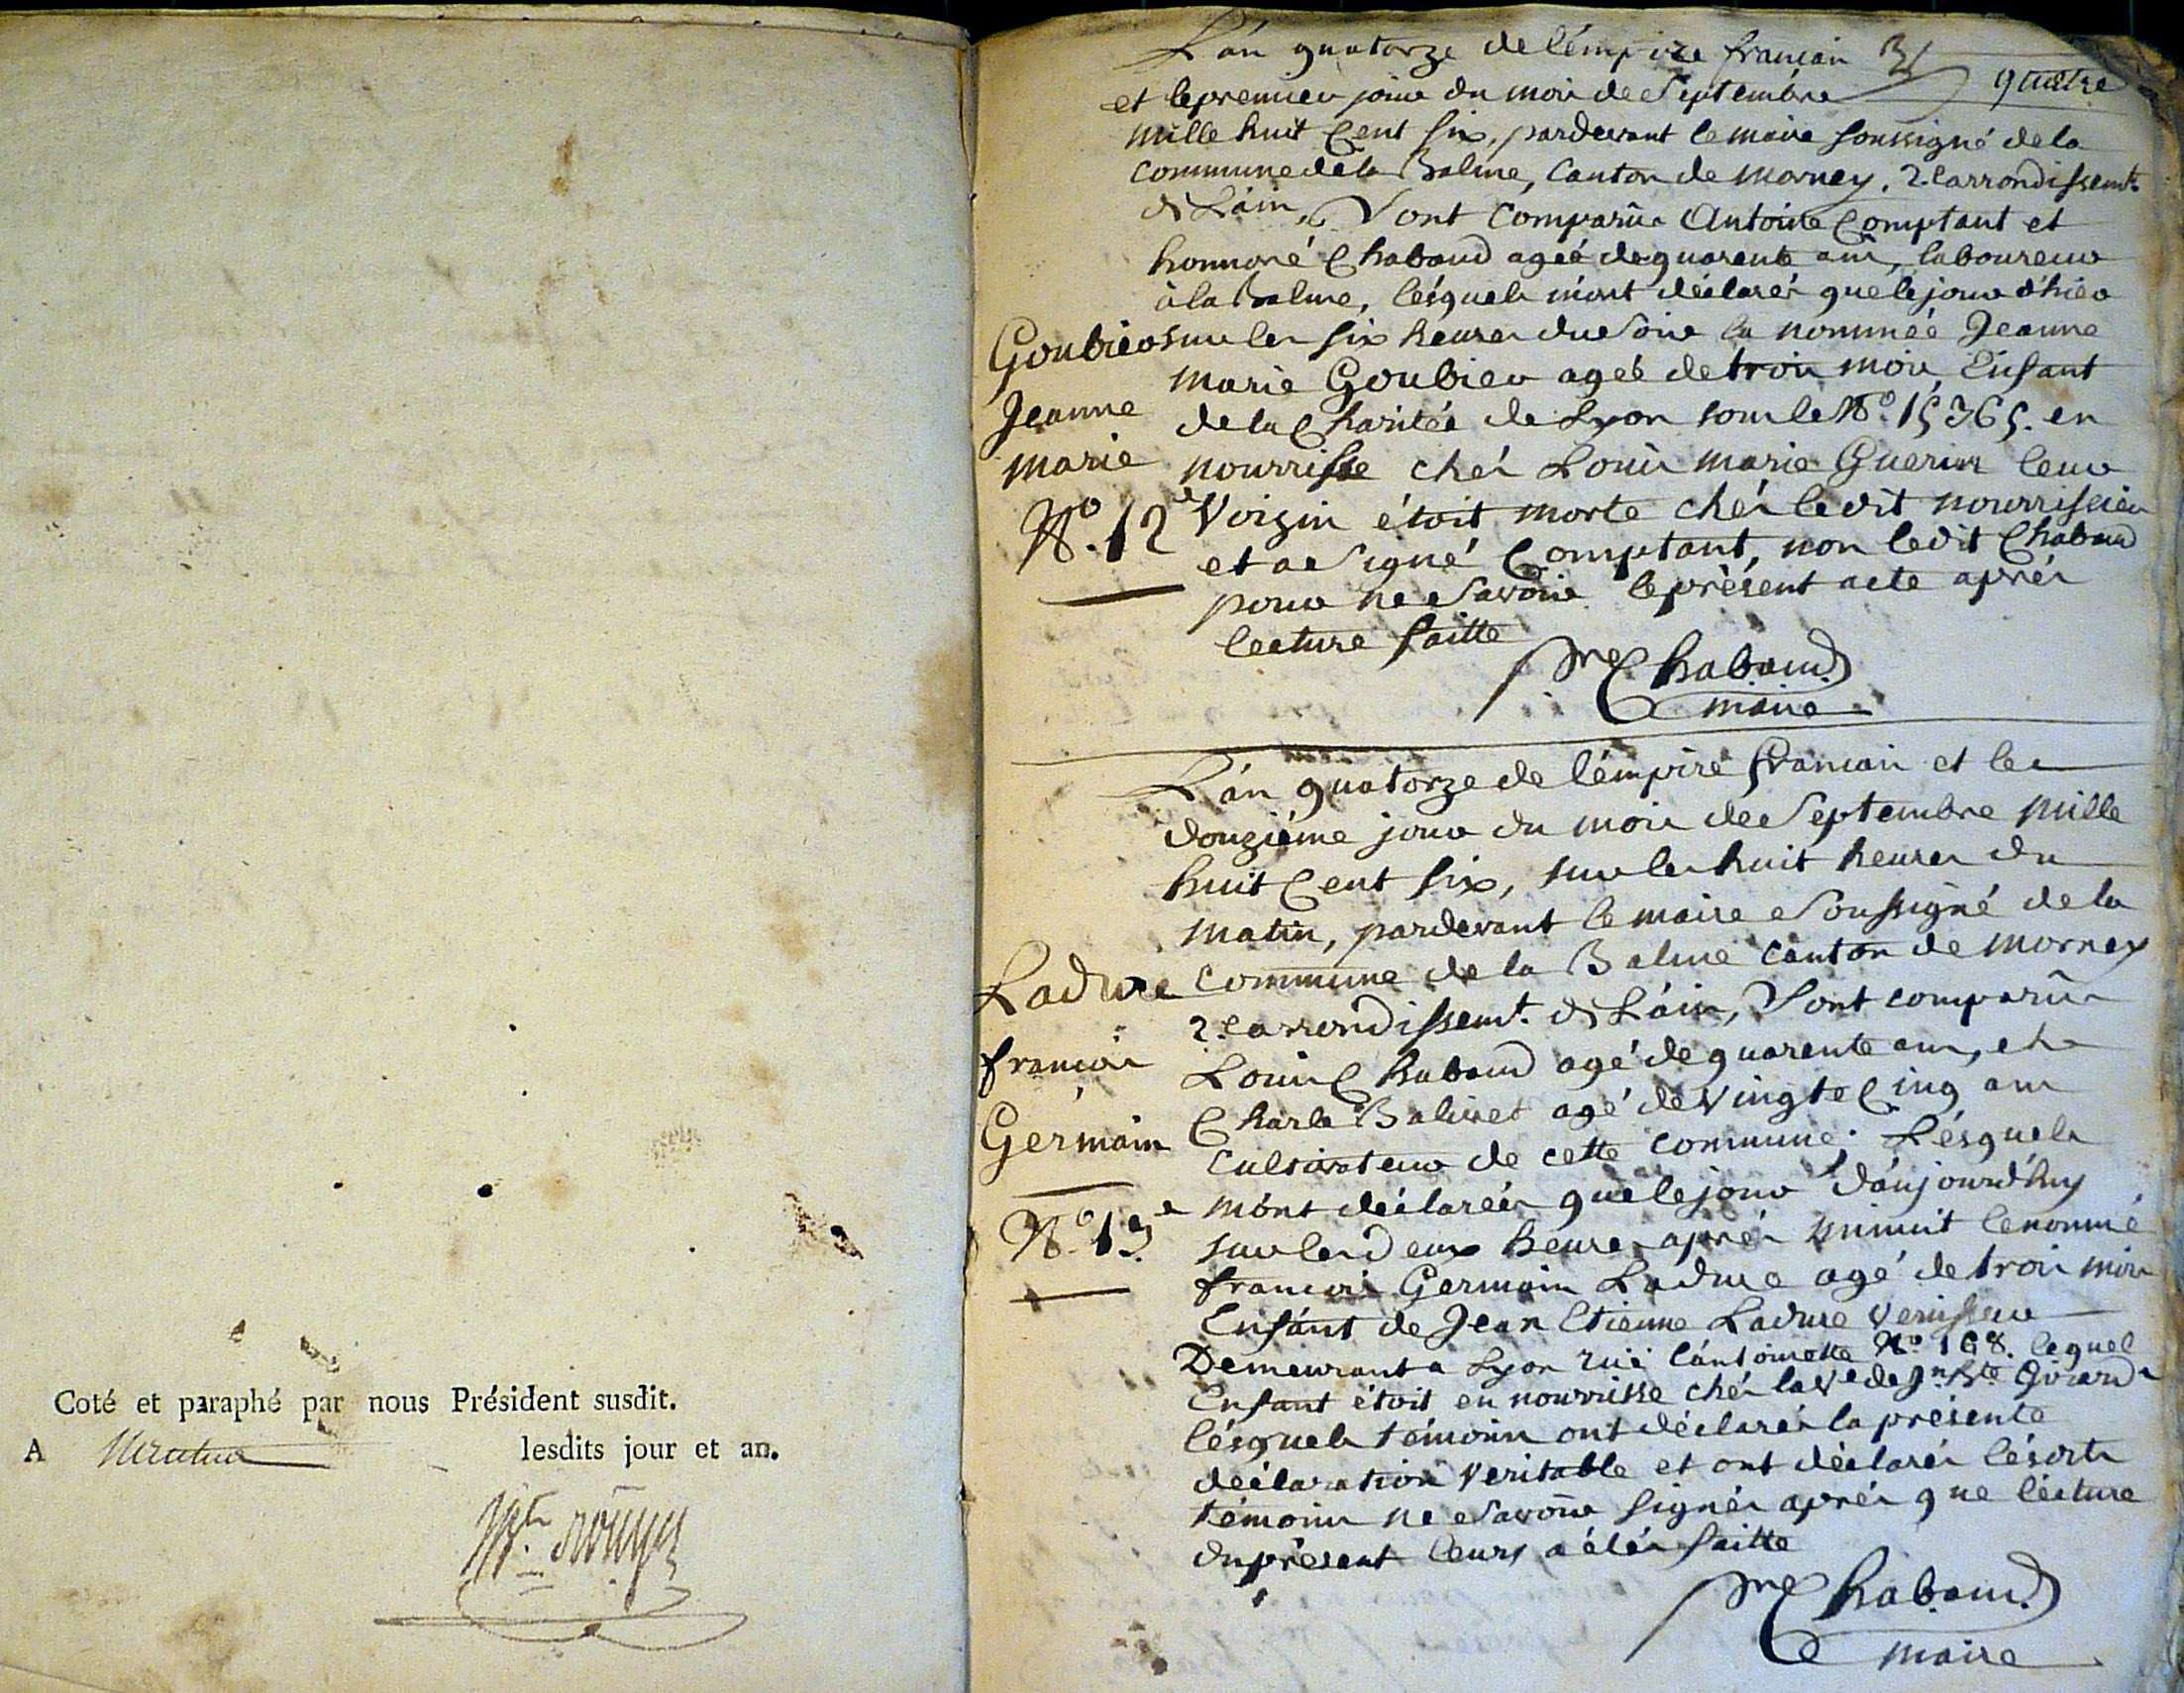 Coté et paraphé par nous Président susdit.
A Nantua lesdits jour et an.
L'án quatorze de l'émpire francais
quatre
et le premier jour du mois de Septembre
mille huit Cent six, pardevant le maire soussigné de la
Commune de la Balme, Canton de mornay, 2.e arrondissemt.
de L'áin, Sont Comparûs Antoine Comptant et
honnoré Chabaud agéé de quarente ans, laboureur
à la Balme, lésquels m'ont déclarés que le jour d'hier
Goubier sur les six heures du Soir la nommée Jeanne
marie Goubier ageé de trois mois, Enfant
Jeanne de la Charitée de Lyon sous le No. 15365. en
marie nourrisse chés Louis marie Guerin leur
No. 12 e Voizin étoit morte chés le dit nourrissier
et a Signé Comptant, non ledit Chabaud
pour ne Savoir le présent acte aprés
lecture faitte
Chabaud
maire
L'án quatorze de l'émpire francais et le
douziéme jour du mois de Septembre mille
huit Cent six, sur les huit heures du
matin, pardevant le maire Soussigné de la
Ladure Commune de la Balme Canton de mornay
2.e arrondissemt. de L'áin, Sont comparûs
françois Louis Chabaud agé de quarente ans, et
Charle Balivet agé de Vingte Cinq ans
Germain Cultivateur de cette commune; Lésquels
m'ónt déclarés que le jour d'áujourd'huy
No. 13. e sur les deux heures aprés minuit le nommé
françois Germain Ladure agé de trois mois
Enfánt de Jean Etienne Ladure
Demeurant a Lyon rüe lántoinette No. 168. lequel
Enfant étoit en nourrisse chés la Ve. de Jn. Bte. Girard
lésquels témoins ont déclarés la présente
déclaration Veritable et ont déclarés lésdits
témoins ne Savoir signés aprés que lécture
du présent leurs a étés faitte
Chabaud
maire